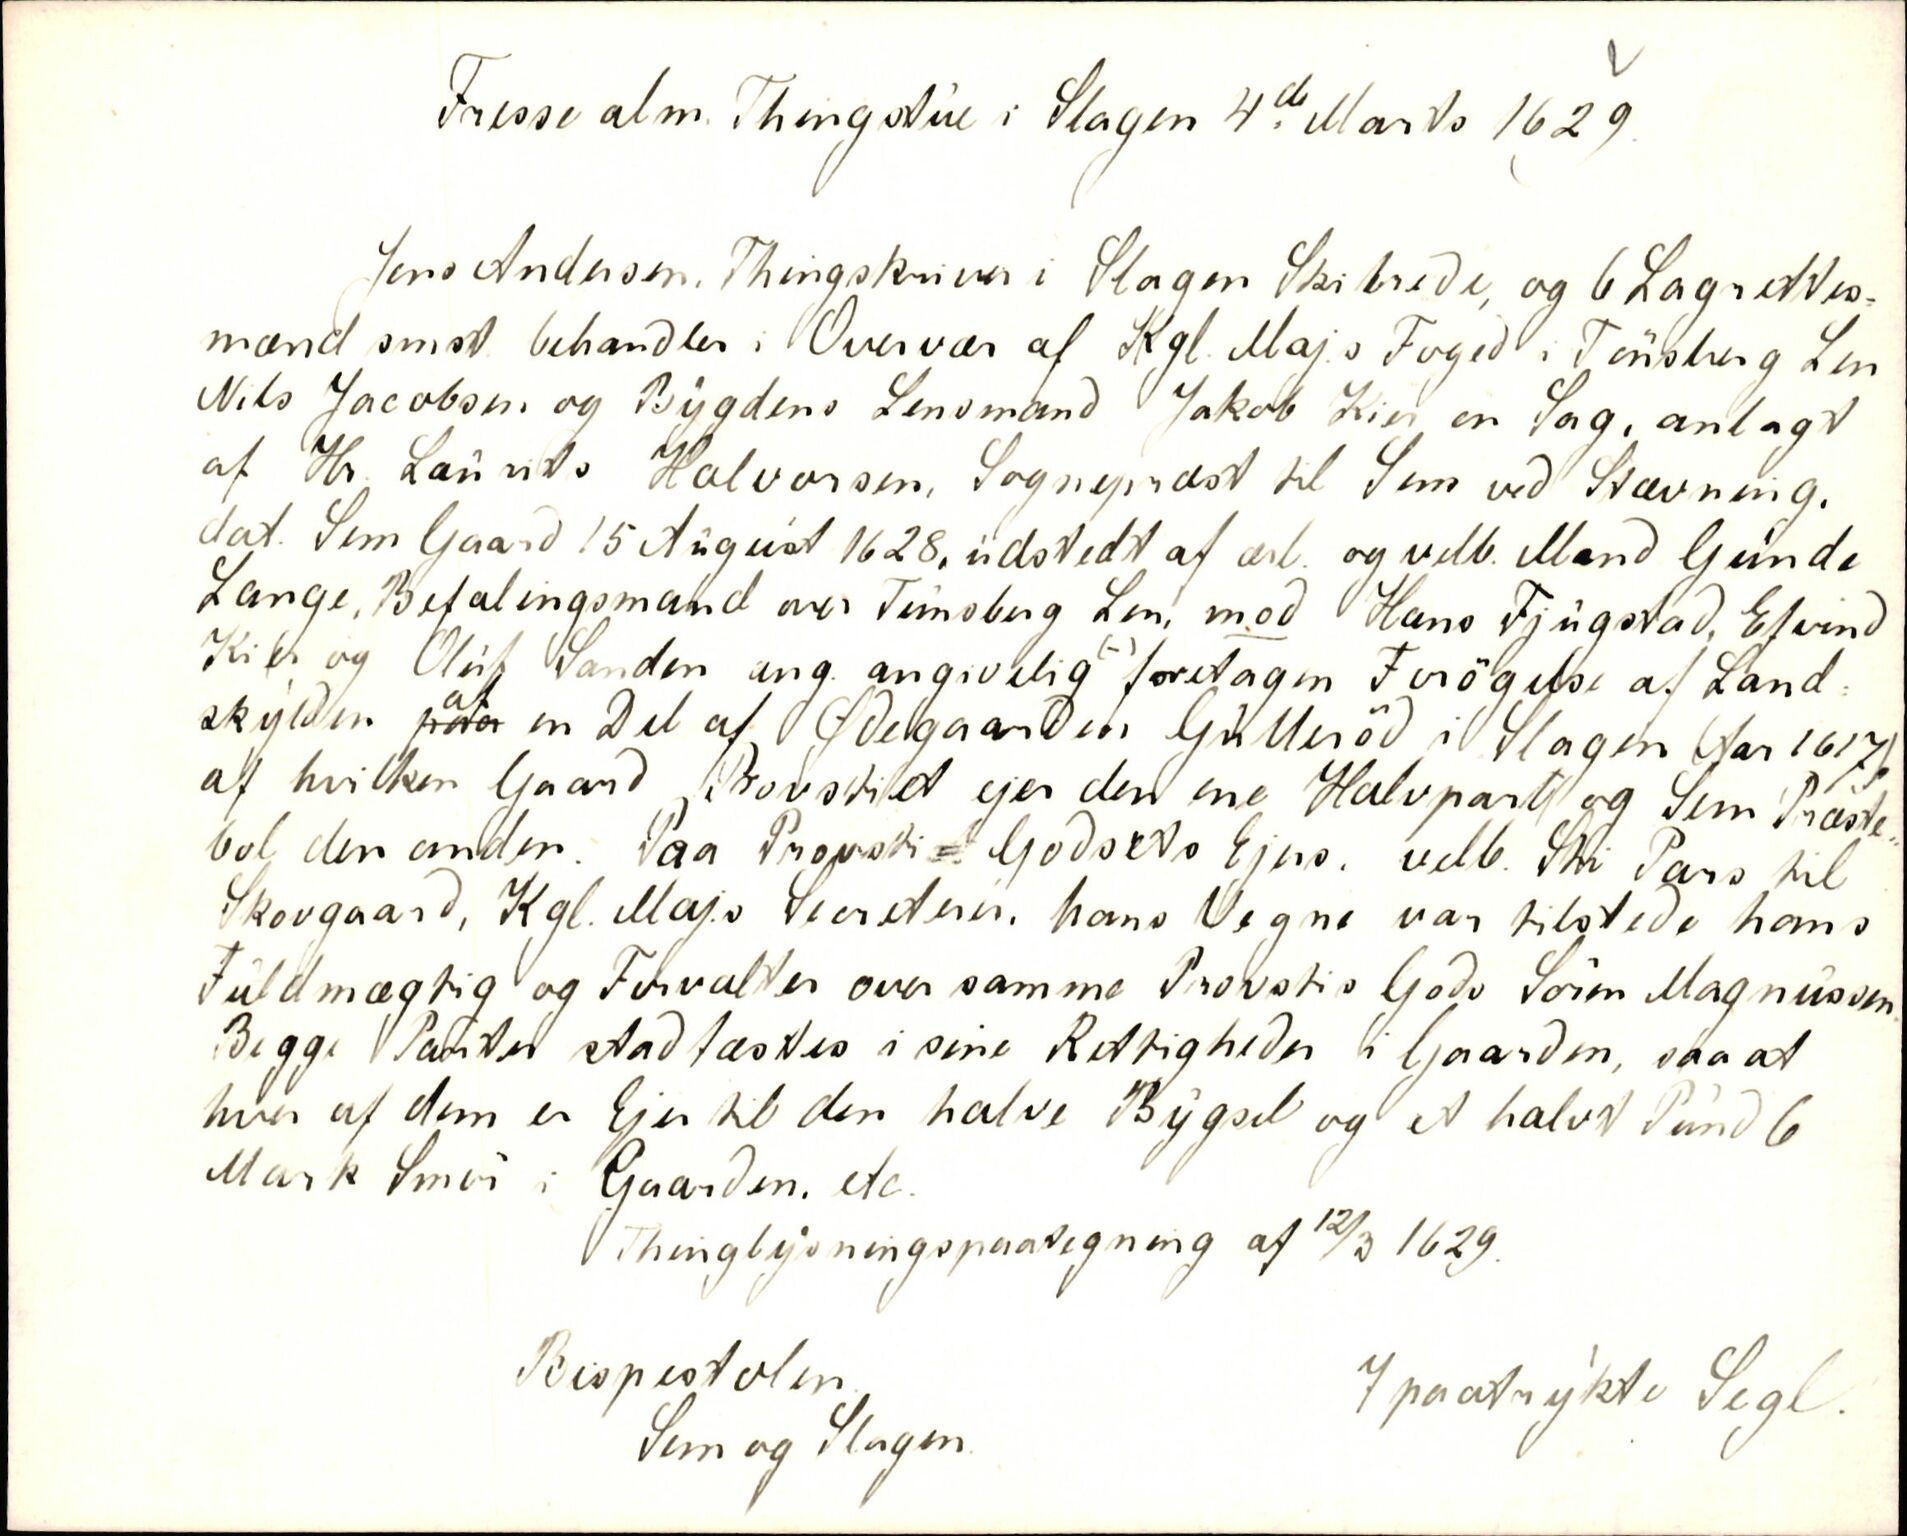 Fresse alm. Thingstue i Slagen 4de Marts 1629.
Jens Andersen, Thingskriver i Slagen Skibrede, og 6 Lagrettes-
mænd smst. behandler i Overvær af Kgl. Maj.s Foged i Tønsberg Len
Nils Jacobsen og Bygdens Lensmand Jakob Kier en Sag, anlagt
af Hr. Laurits Halvorsen, Sognepræst til Sem ved Stævning,
dat. Sem Gaard 15 August 1628, udstedt af ærl. og velb. Mand Gunde
Lange, Befalingsmand over Tunsberg Len, mod Hans Fjugstad, Efvind
Kier og Oluf Sanden ang. angivelig (-) foretagen Forögelse af Land-
skylden af en Del af Ødegaarden Gulleröd i Slagen (Aar 1617),
af hvilken Gaard Provstiet ejer den ene Halvpart og Sem Præste-
bol den anden. Paa Provsti Godsets Ejers, velb. Sti Pars til
Skovgaard, Kgl. Maj.s Secreterer, hans Vegne var tilstede hans
Fuldmægtig og Forvalter over samme Provstis Gods Sören Magnussen.
Begge Parter stadfæstes i sine Rettigheder i Gaarden, saa at
hver af dem er Ejer til den halve Bygsel og et halvt Pund 6
Mark Smör i Gaarden, etc.
Thinglysningspaategning af 12/3 1629.
Bispestolen
Sem og Slagen
7 paatrykte Segl.